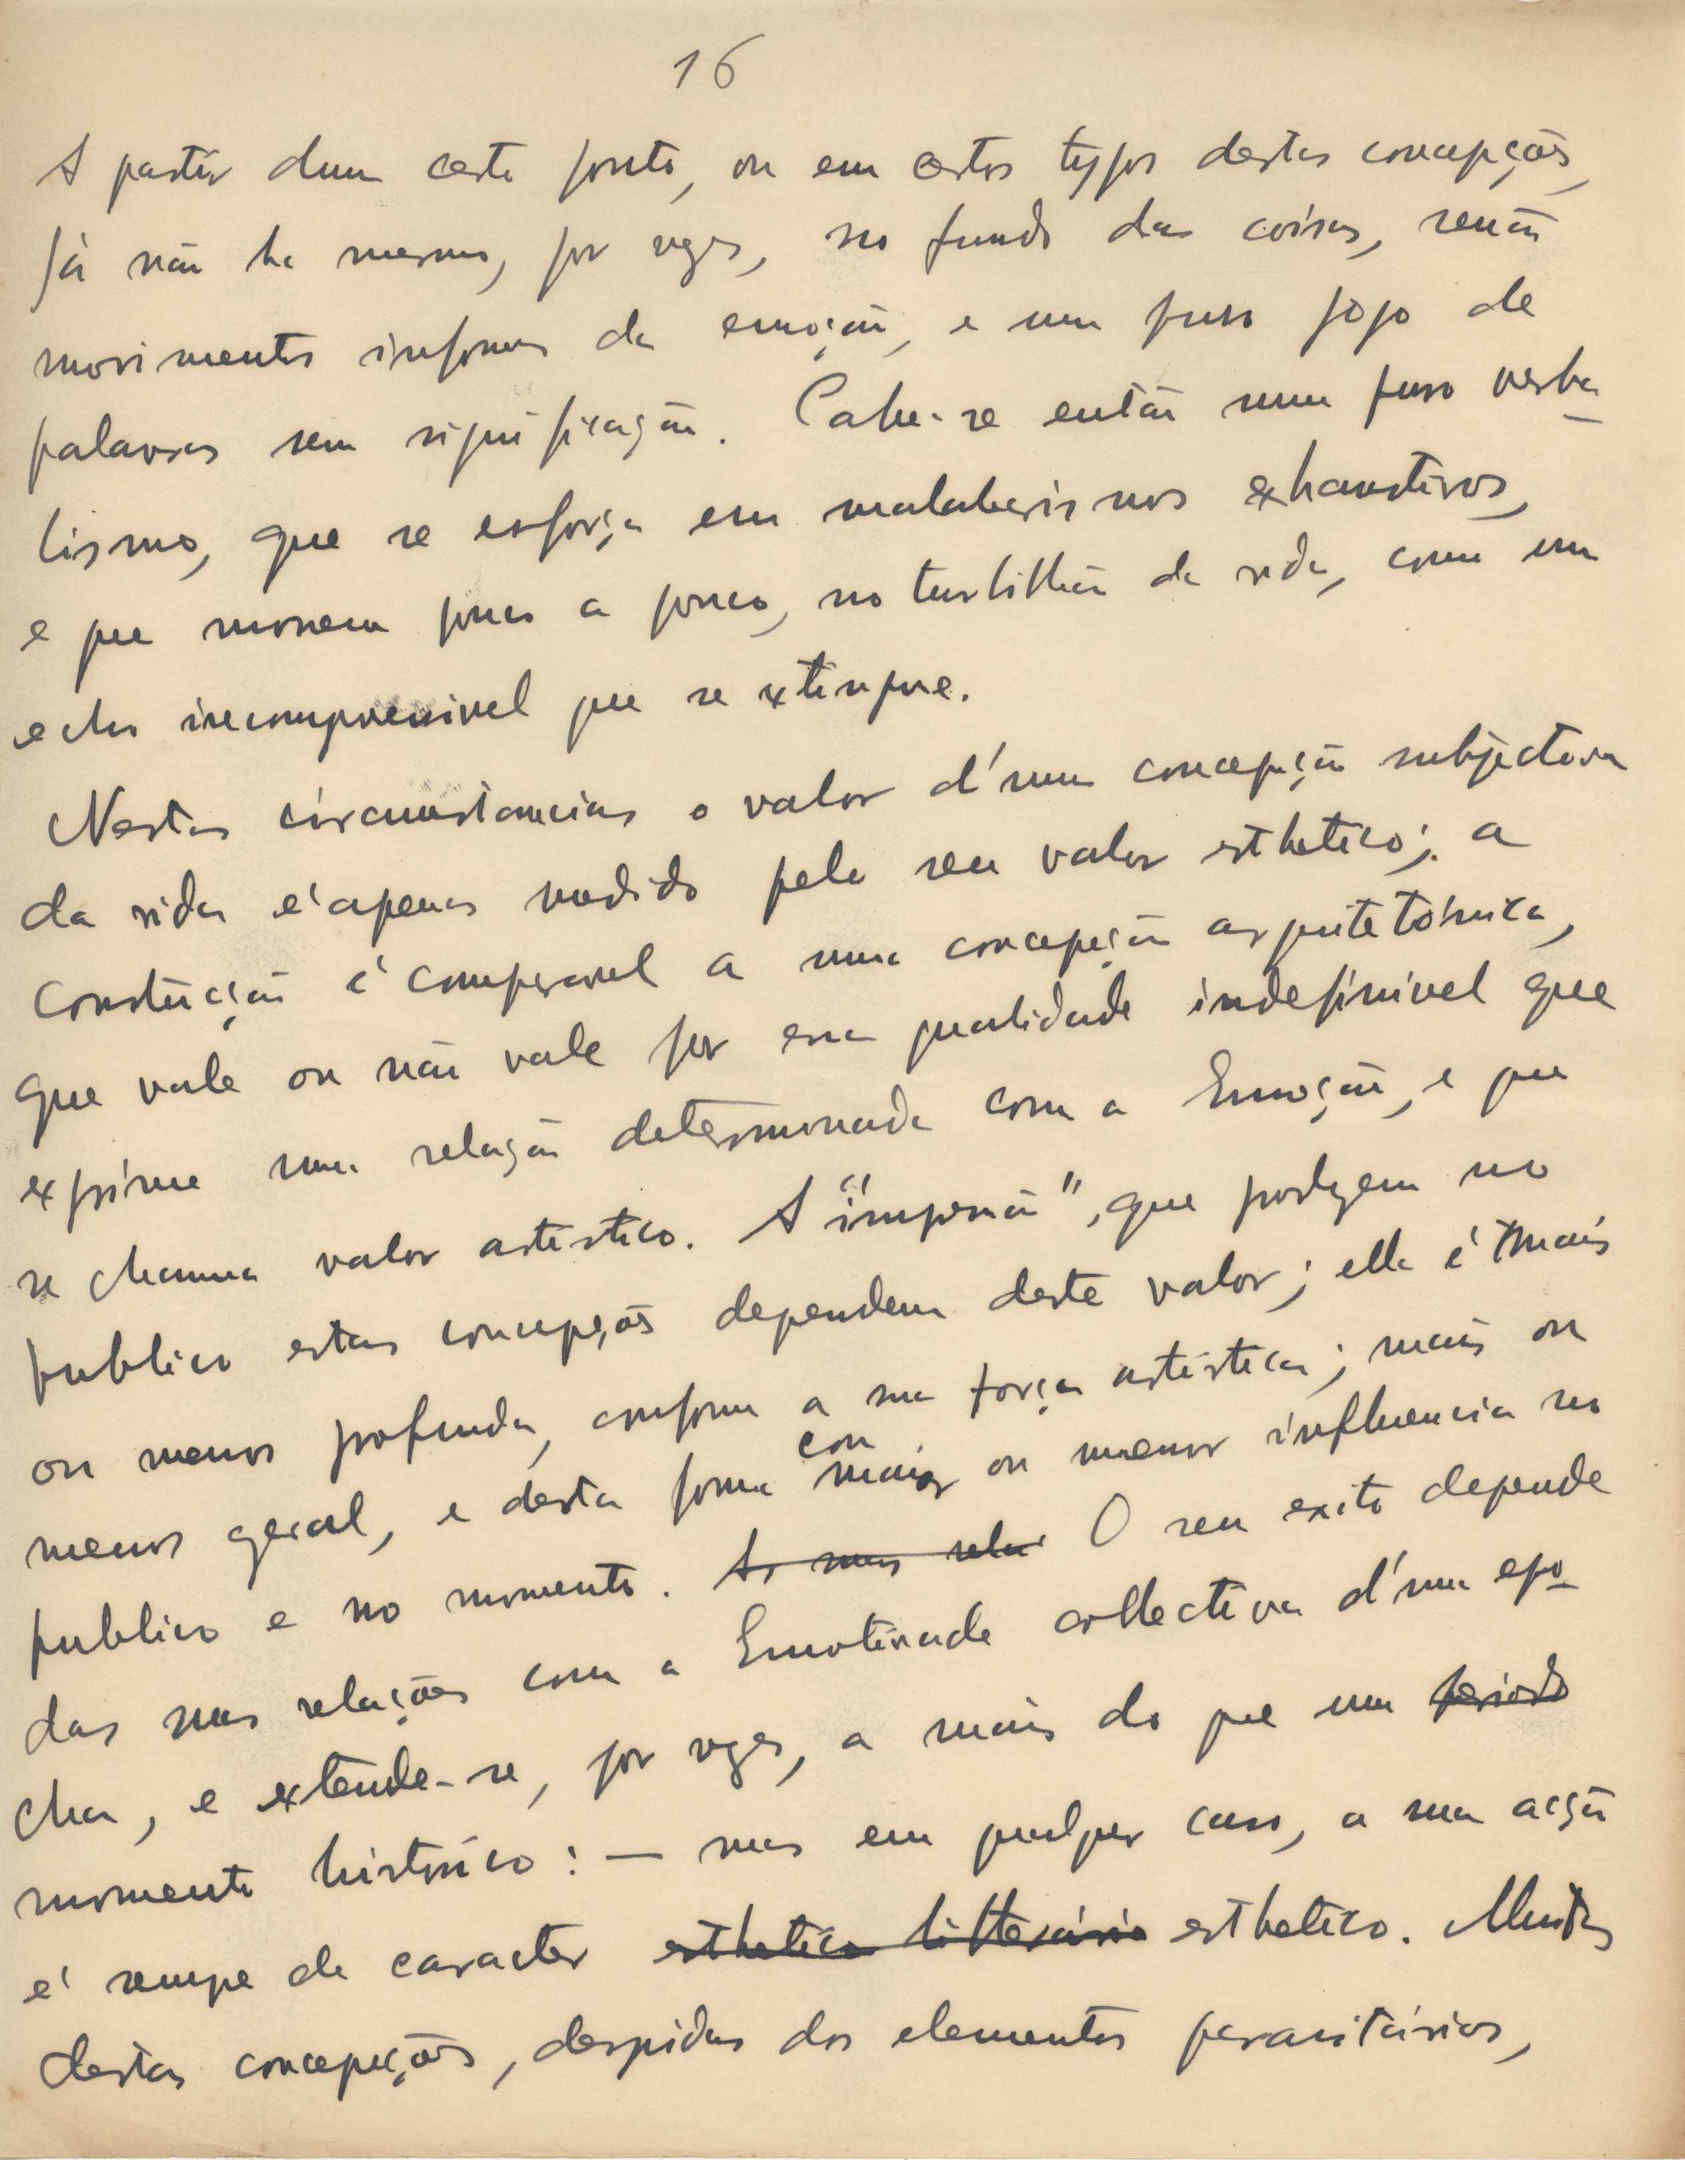 16
A partir dum certo ponto, ou em certos typos destas concepções,
já não ha mesmo, por vezes, no fundo das coisas, senão
movimentos informes da emoção, e um puro jogo de
palavras sem significação. Cahe-se então num puro verba-
lismo, que se esforça em malabarismos exhaustivos,
e que morrem pouco a pouco, no turbilhão da vida, como um
echo incomprensivel que se extingue.
Nestas circumstancias o valor d'uma concepção subjectiva
da vida é apenas medido pelo seu valor esthetico; a
construcção é comparavel a uma concepção arquitetónica,
que vale ou não vale por essa qualidade indefinivel que
exprime uma relação determinada com a Emoção, e que
se chama valor artistico. A "impressão", que produzem no
publico estas concepções dependem deste valor; ella é mais
ou menos profunda, conforme a sua força artistica; mais ou
menos geral, e desta forma con maior ou menor influencia no
publico e no momento. As suas rela O seu exito depende
das suas relações com a Emotividade collectiva d'uma epo-
cha, e extende-se, por vezes, a mais do que um periodo
momento histórico: — mas em qualquer caso, a sua acção
é sempre de caracter esthetico litterário esthetico. Muitas
destas concepções, despidas dos elementos parasitários,